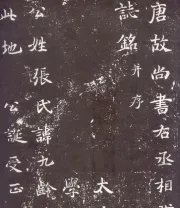 唐故尚書右丞相
誌銘并序
太
學
公姓張氏諱九齡
此地
公誕受正